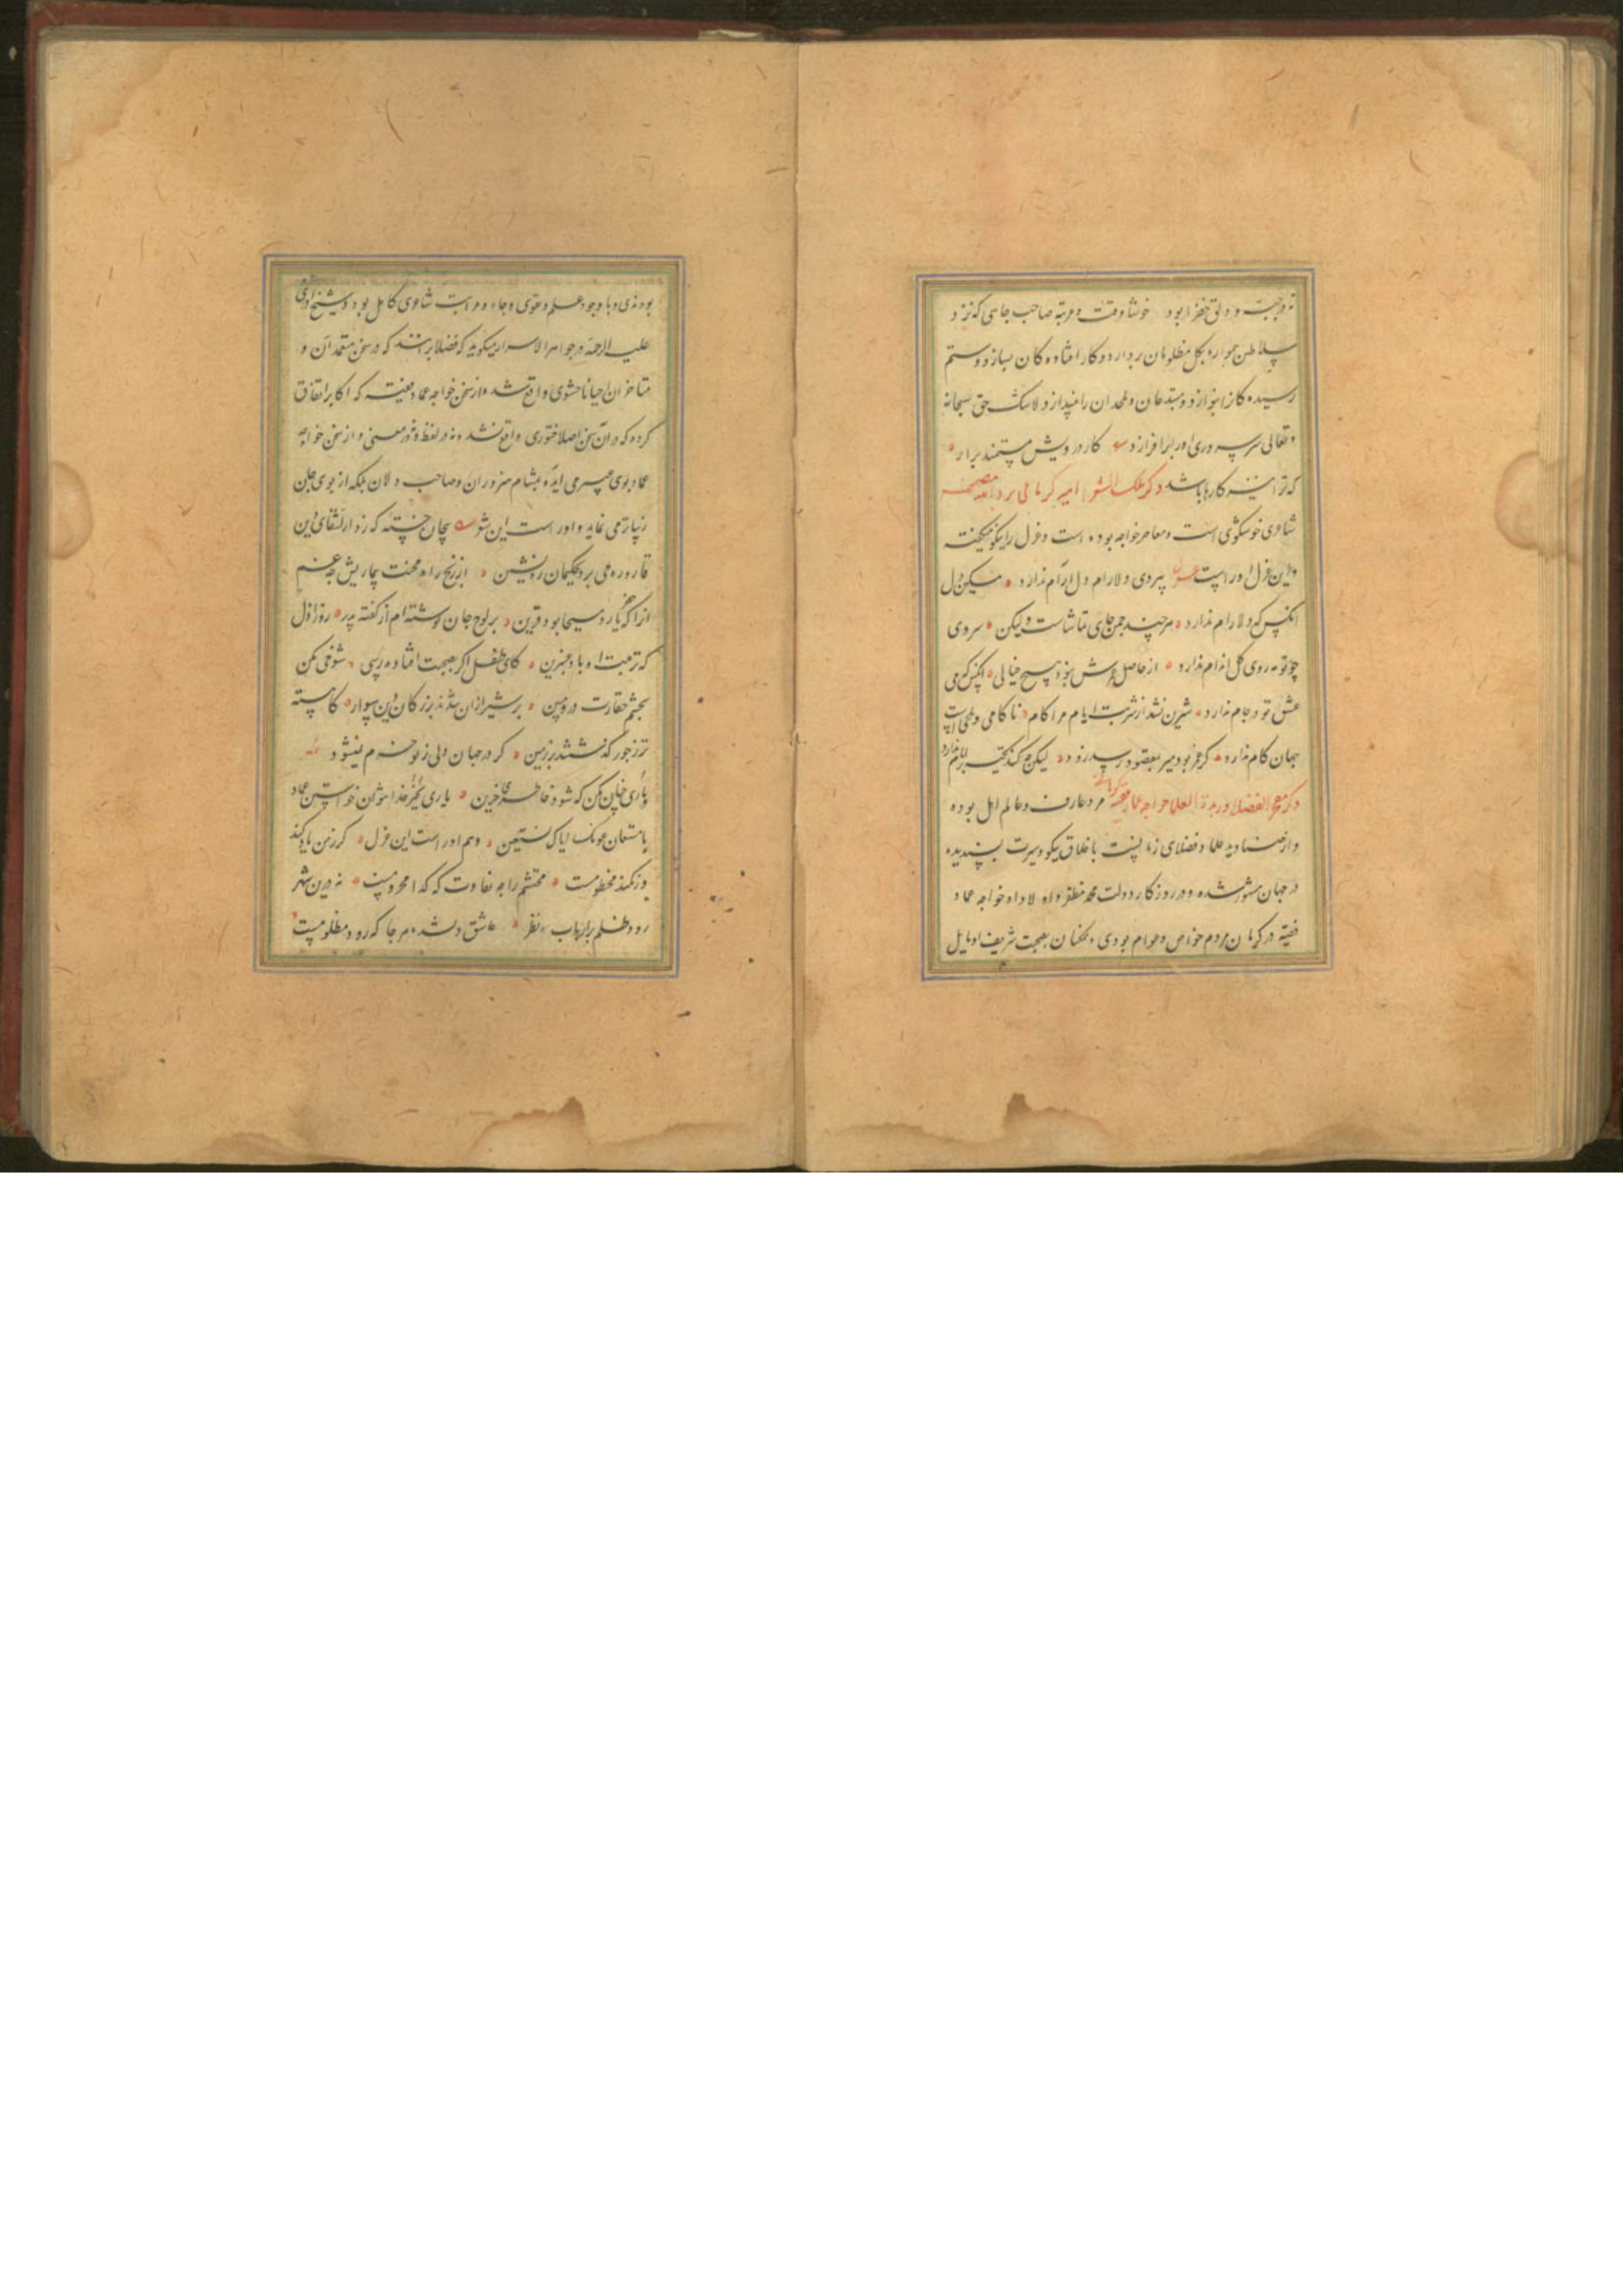 خوشا وقت و مرتبه صاحب جاهی که نزد
سلاطین همواره بکل مظلومان بردارد و کار افتاده کان بسازد و ستم
رسیده کانرا بنوازد و مبتدعان و ملحدان را بنیدازد لاشک حق سبحانه
و تعالی سر سروری او را برافرازد کار درویش مستمند برار
که ترا نیز کارها باشد ذکر ملک الشعرا امیر کرمانی
شاعری خوشگوی است و معاصر خواجه بوده است و غزل را نیکو میگفت
و این غزل او راست بیروی دلارام دل ارام ندارد مسکین دل
انکس که دلارام ندارد هر چند چمن جای تماشاست ولیکن سروی
چو تو مه روی گل اندام ندارد از حاصل عمرش نبود هیچ خیالی انکس که می
عشق تو در جام ندارد شیرین نشد از شربت ایام مرا کام ناکامی
بجهان کام ندارد گر عمر بود میر بمقصود رسد زود لیکن چه کند تکیه بر ایام ندارد
ذکر مفخر الفضلا و زبدة العلما خواجه عماد فقیه کرمانی مرد عارف و عالم اهل بوده
و از صنادید علما و فضلای زمانست باخلاق نیکو و سیرت پسندیده
در جهان مشهور شده و در روزگار دولت محمد مظفر و اولاد او خواجه عماد
فقیه در کرمان مردم خواص و عوام بودی همکنان بصحبت شریف او مایل
بودندی و با وجود علم و تقوی و جاه و مراتب شاعری کامل بود و شیخ اذری
علیه الرحمة در جواهر الاسرار میگوید که فضلا برانند که در سخن متقدمان و
متاخران احیانا حشوی واقع شده و از سخن خواجه عماد فقیه که اکابر اتفاق
کرده که در ان سخن اصلا فتوری واقع نشده نه در لفظ و نه در معنی و از سخن خواجه
عماد بوی عبیر می اید بمشام هنروران و صاحب دلان بلکه از بوی جان
زیباتر می نماید و اوراست این شعر
قاروره می برد بحکیمان ره نشین از رنج راه محنت بیماریش چه غم
انرا که خضر یار و مسیحا بود قرین بر لوح جان نوشته ام از گفته پدر روز ازل
که تربت او باد عنبرین کای طفل اگر بصحبت افتاده رسی شوخی مکن
بچشم حقارت درو مبین بر شیر ازان شدند بزرگان دین سوار کاهسته
تر ز مور گذشتند بر زمین گر در جهان دلی ز تو خرم نمیشود
باری چنان مکن که شود خاطری حزین یاری بجز خدا نتوان خواستن عماد
یا مستعان عونک ایاک نستعین وهم اوراست این غزل گر ز من یاد کند
ور نکند مخدومست محتشم را چه تفاوت که گدا محرومست نه درین شهر
رود ظلم بر ارباب نظر عاشق دلشده هر جا که رود مظلومست